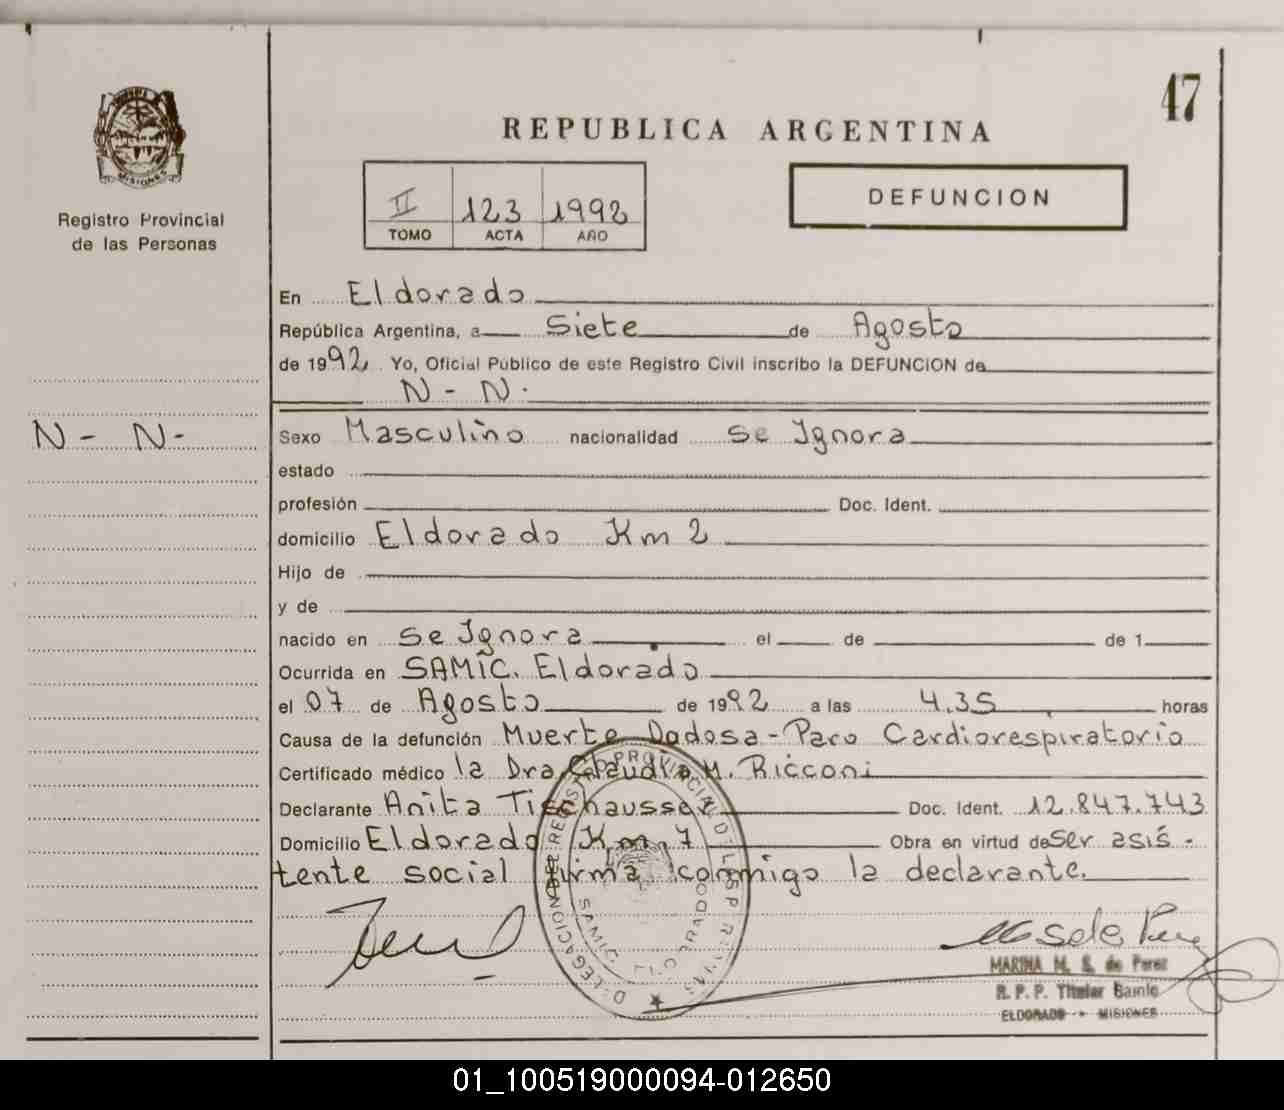 47
REPUBLICA ARGENTINA
MISIONES
Registro Provincial
de las Personas
II 123 1992
TOMO ACTA AÑO
DEFUNCION
En Eldorado
República Argentina, a Siete de Agosto
de 1992 Yo, Oficial Público de este Registro Civil inscribo la DEFUNCION de
N - N.
N - N-
Sexo Masculino nacionalidad se Ignora
estado
profesión Doc. Ident.
domicilio Eldorado Km 2
Hijo de
y de
nacido en Se Ignora el de de 1
Ocurrida en SAMIC. Eldorado
el 07 de Agosto de 1992 a las 4.35 horas
Causa de la defunción Muerte Dudosa - Paro Cardiorespiratorio
Certificado médico la Dra. Claudia M. Ricconi
Declarante Anita Tischausser Doc. Ident. 12.847.743
Domicilio Eldorado Km. 7 Obra en virtud de ser asis-
tente social firma conmigo la declarante.
DELEGACION DEL REGISTRO PROVINCIAL DE LAS PERSONAS
SAMIC ELDORADO
MARINA M. S. de Perez
R. P. P. Titular
ELDORADO - MISIONES
01_100519000094-012650